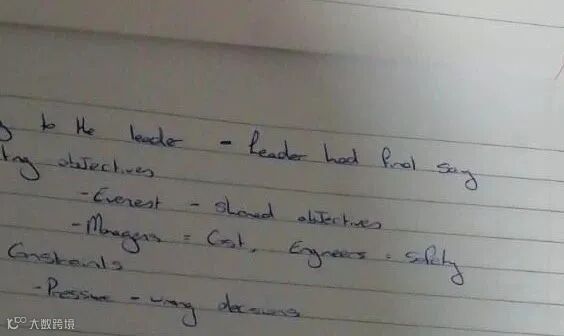 to the leader - leader had final say
ting objectives
- Everest - shared objectives
- Managers = Cost, Engineers = safety
Constraints
- Pressure - wrong decisions
大数跨境